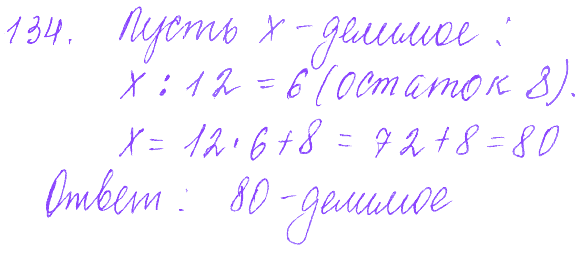 134. Пусть x - делимое :
x : 12 = 6 (остаток 8).
x = 12 · 6 + 8 = 72 + 8 = 80
Ответ : 80 - делимое